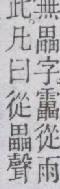 無畾字靁從雨
此凡曰從畾聲